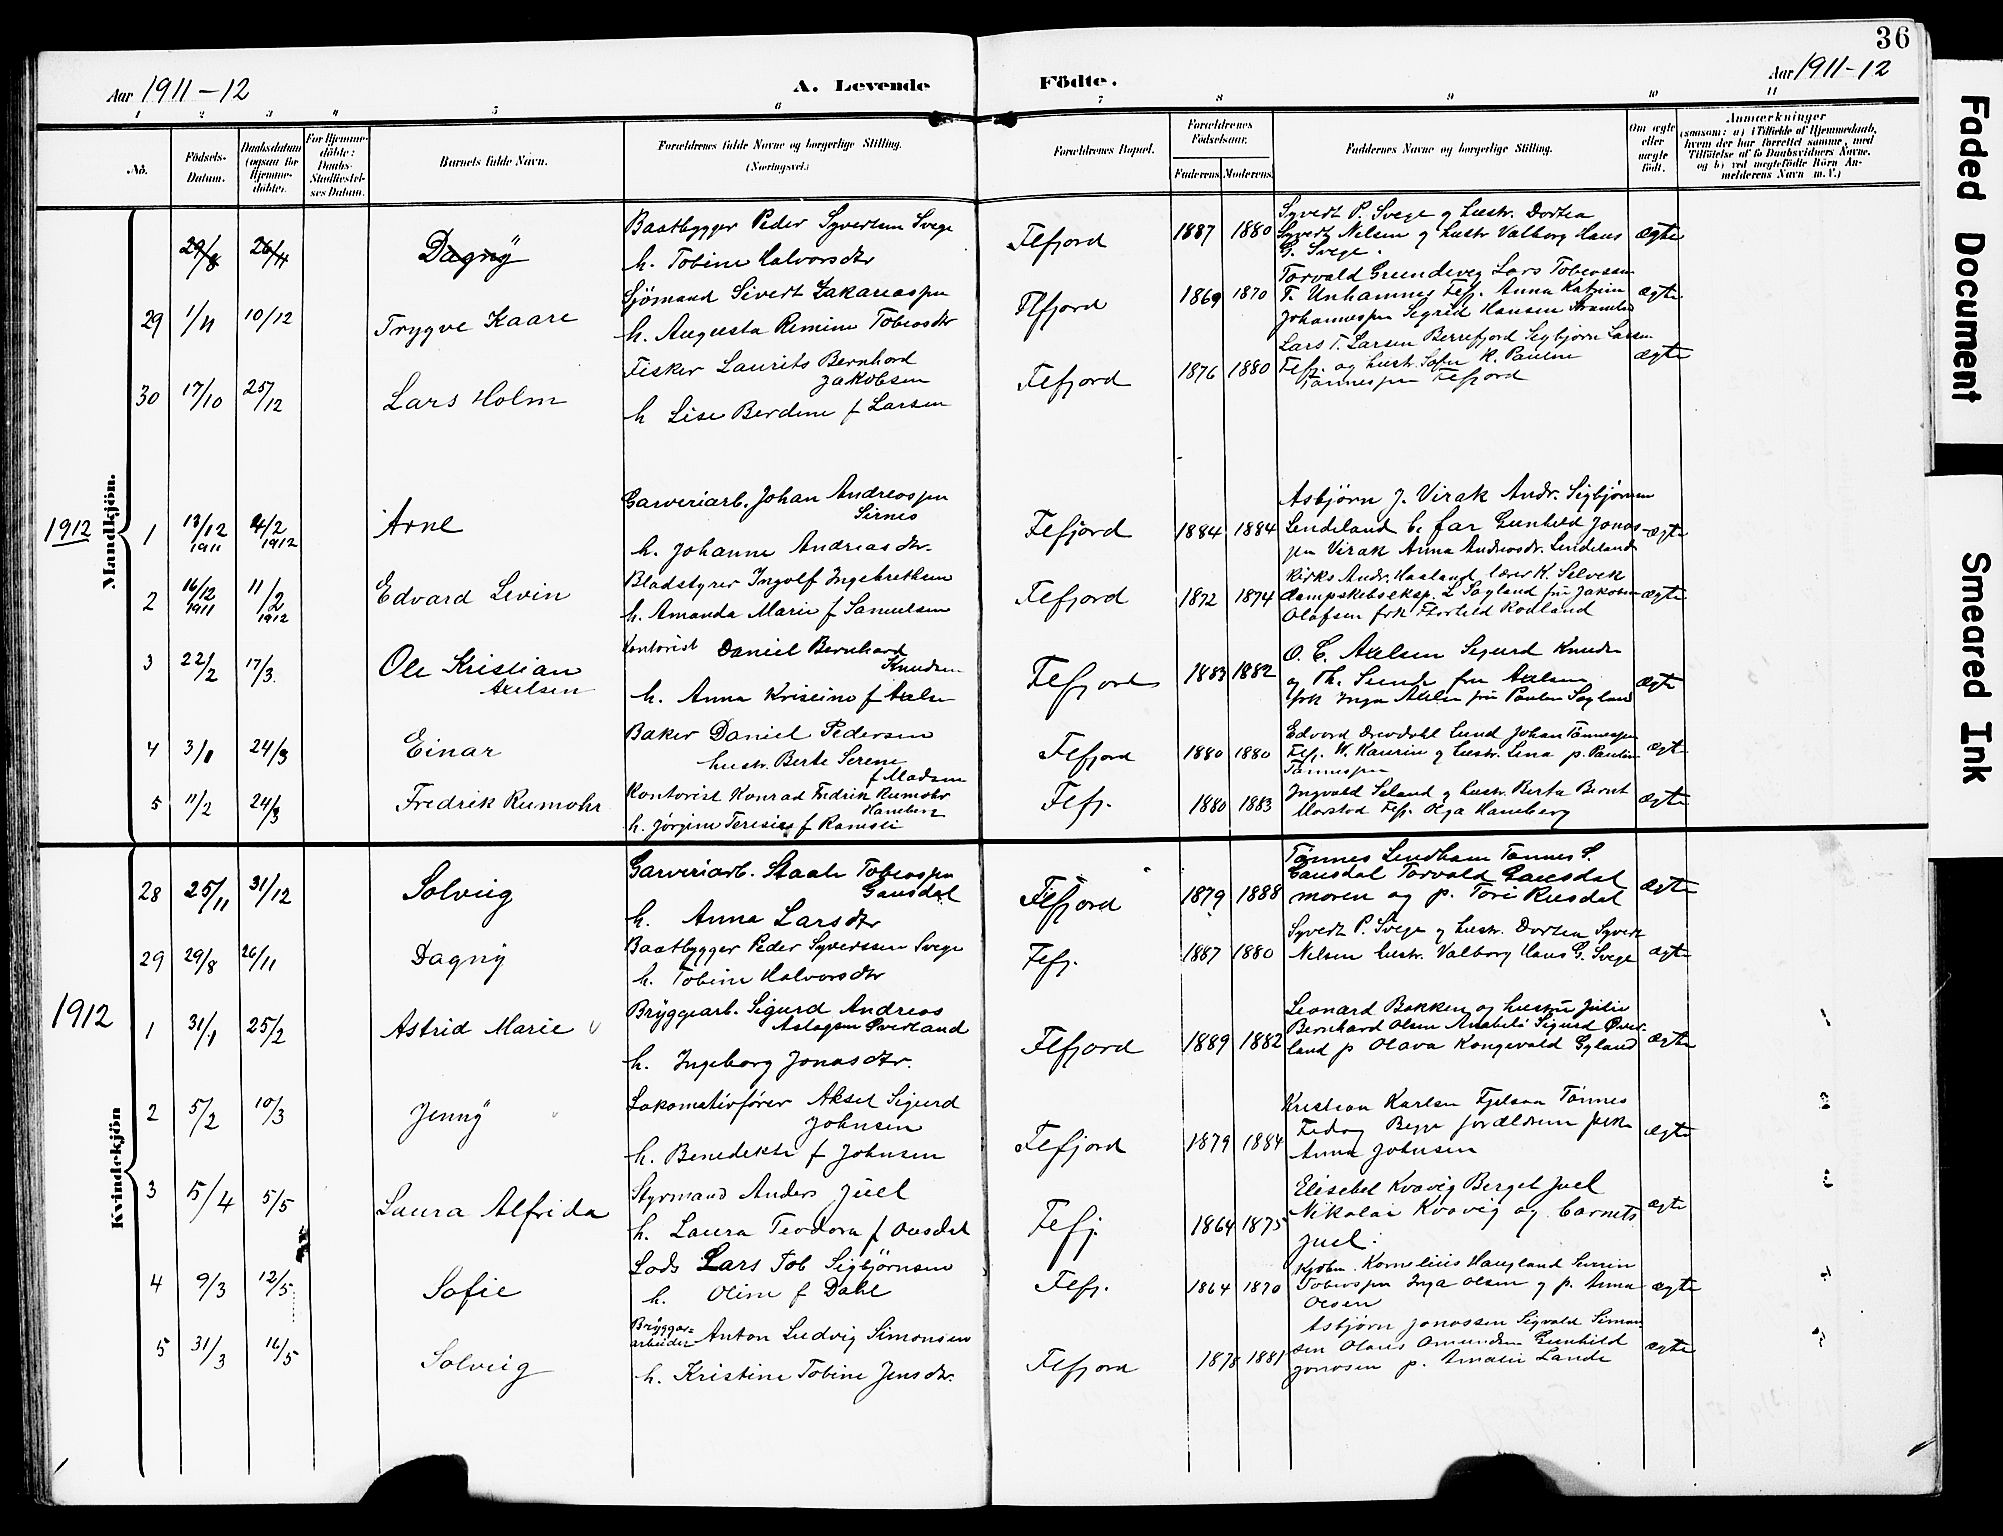 36
Aar 1911-12
A. Levende
Födte.
Aar 1911-12
1 2 3 4 5 6 7 8 9 10 11
No.
Födsels-Datum.
Daabsdatum (ogsaa for Hjemmedöbte).
For Hjemmedöbte: Daabs-Stadfæstelses Datum.
Barnets fulde Navn.
Forældrenes fulde Navne og borgerlige Stilling.
(Næringsvei.)
Forældrenes Bopæl.
Forældrenes Födselsaar.
Faderens. Moderens.
Faddernes Navne og borgerlige Stilling.
Om ægte eller uægte födt.
Anmærkninger
(saasom: a) i Tilfælde af Hjemmedaab,
hvem der har forrettet samme, med
Tilföielse af to Daabsvidners Navne,
og b) ved uægtefödte Börn Anmelderens Navn m. V.)
Mandkjön.
29/8 26/11 Dagny
Baatbygger Peder Syvertsen Svege
h. Tobine Halvorsdtr
Flefjord 1887 1880
Syvert P. Svege og hustr. Dortea
Syvert Nelsen og hustr Valborg Hans
G. Svege.
ægte
29 1/11 10/12 Trygve Kaare
Sjömand Sivert Zakariaspn
h. Augusta Remine Tobiasdtr
Flefjord 1869 1870
Torvald Grundevig Lars Tobiassen
T. Unhammes Flefj. Anna Katrine
Johannespn Sigrid Hansen
ægte
30 17/10 25/12 Lars Holm
Fisker Laurits Bernhard
Jakobsen
h Lise Berdine f Larsen
Flefjord 1876 1880
Lars T. Larsen Berrefjord Sigbjörn Larsen
Flefj. og hustr. Sofie K. Paulsen
Tönnespn Flefjord
ægte
1912
1 13/12 1911 4/2 1912 Arne
Garveriarb. Johan Andreaspn
Sirnes
h. Johanne Andreasdtr.
Flefjord 1884 1884
Asbjörn J. Virak Andr. Sigbjörnsen
Lendeland b. far Gunhild Jonas-
pn Virak Anna Andreasdr. Lendeland
ægte
2 16/12 1911 11/2 1912 Edvard Levin
Bladstyrer Ingolf Ingebretsen
h. Amanda Marie f Samuelsen
Flefjord 1872 1874
Kirks Andr. Haaland lærer K. Selvik
dampskibseksp. L Sagland fru Jakobsen
Olafsen frk Torhild Rodland
ægte
3 22/2 17/3. Ole Kristian
Axelsen
Kontorist Daniel Bernhard
Knudsen
h. Anna Kristine f Axelsen
Flefjord 1883 1882
O. C. Axelsen Sigurd Knudsen
og Th. Sunde fru Axelsen
frk Inga Axelsen fru Paulsen Sagland
ægte
4 3/1 24/3 Einar
Baker Daniel Pedersen
hustr. Berte Serene
f Madsen
Flefjord 1880 1880
Edvard Drevdahl Lund Johan Tönnespn
Flefj. W. Kaurin og hustr. Lina p. Pauline
Tönnespn
ægte
5 11/2 24/3 Fredrik Rumohr
Kontorist Konrad Fredrik Rumohr
Haneberg
h. Jörgine Teresie f Ramsli
Flefj. 1880 1883
Ingvald Seland og hustr. Berta Bernt
Morstøl Flefj. Olga Haneberg
ægte
Kvindekjön
28 25/11 31/12 Solveig
Garveriarb. Staale Tobiaspn
Gausdal
h. Anna Larsdtr
Flefjord 1879 1888
Tönnes Lendham Tönnes S.
Gausdal Torvald Gausdal
moren og p. Tori Rusdal
ægte
29 29/8 26/11 Dagny
Baatbygger Peder Syvertsen Svege
h. Tobine Halvorsdtr
Flefj. 1887 1880
Syvert P. Svege og hustr. Dortea Syvert
Nelsen hustr. Valborg Hans G. Svege
ægte
1912
1 31/1 25/2 Astrid Marie
Bryggearb. Sigurd Andreas
Aslagsen Øverland
h. Ingeborg Jonasdtr.
Flefjord 1889 1882
Leonard Bakken og hustru Julie
Bernhard Olsen Anabelø Sigurd Øver-
land p Olava Kongevold Gyland
ægte
2 5/2 10/3 Jenny
Lokomotivförer Aksel Sigurd
Johnsen
h. Benedikte f Johnsen
Flefjord 1879 1884
Kristian Karlsen Fjelsaa Tönnes
Fedog Begge foraldrene frk
Anna Johnsen
ægte
3 5/4 5/5 Laura Alfrida
Styrmand Anders Juel
h. Laura Teodora f Ousdal
Flefj 1864 1875
Elisabet Kvavig Berget Juel
Nikolai Kvavig og barnets
Juel.
ægte
4 9/3 12/5 Sofie
Lods Lars Tob Sigbjörnsen
h. Oline f Dahl
Flefj. 1864 1870
Kjøbm. Kornelius Haugland Severin
Tobiaspn Inga Olsen og p. Anna
Olsen
ægte
5 31/3 16/5 Solveig
Bryggeri-
arbeider Anton Ludvig Simonsen
h. Kristine Tobine Jensdtr.
Flefjord 1878 1881
Asbjörn Jonassen Sigvald Simon
sen Olaus Omundsen Gunhild
Jonasen p. Amalie Lande
ægte
Faded Document
Smeared Ink